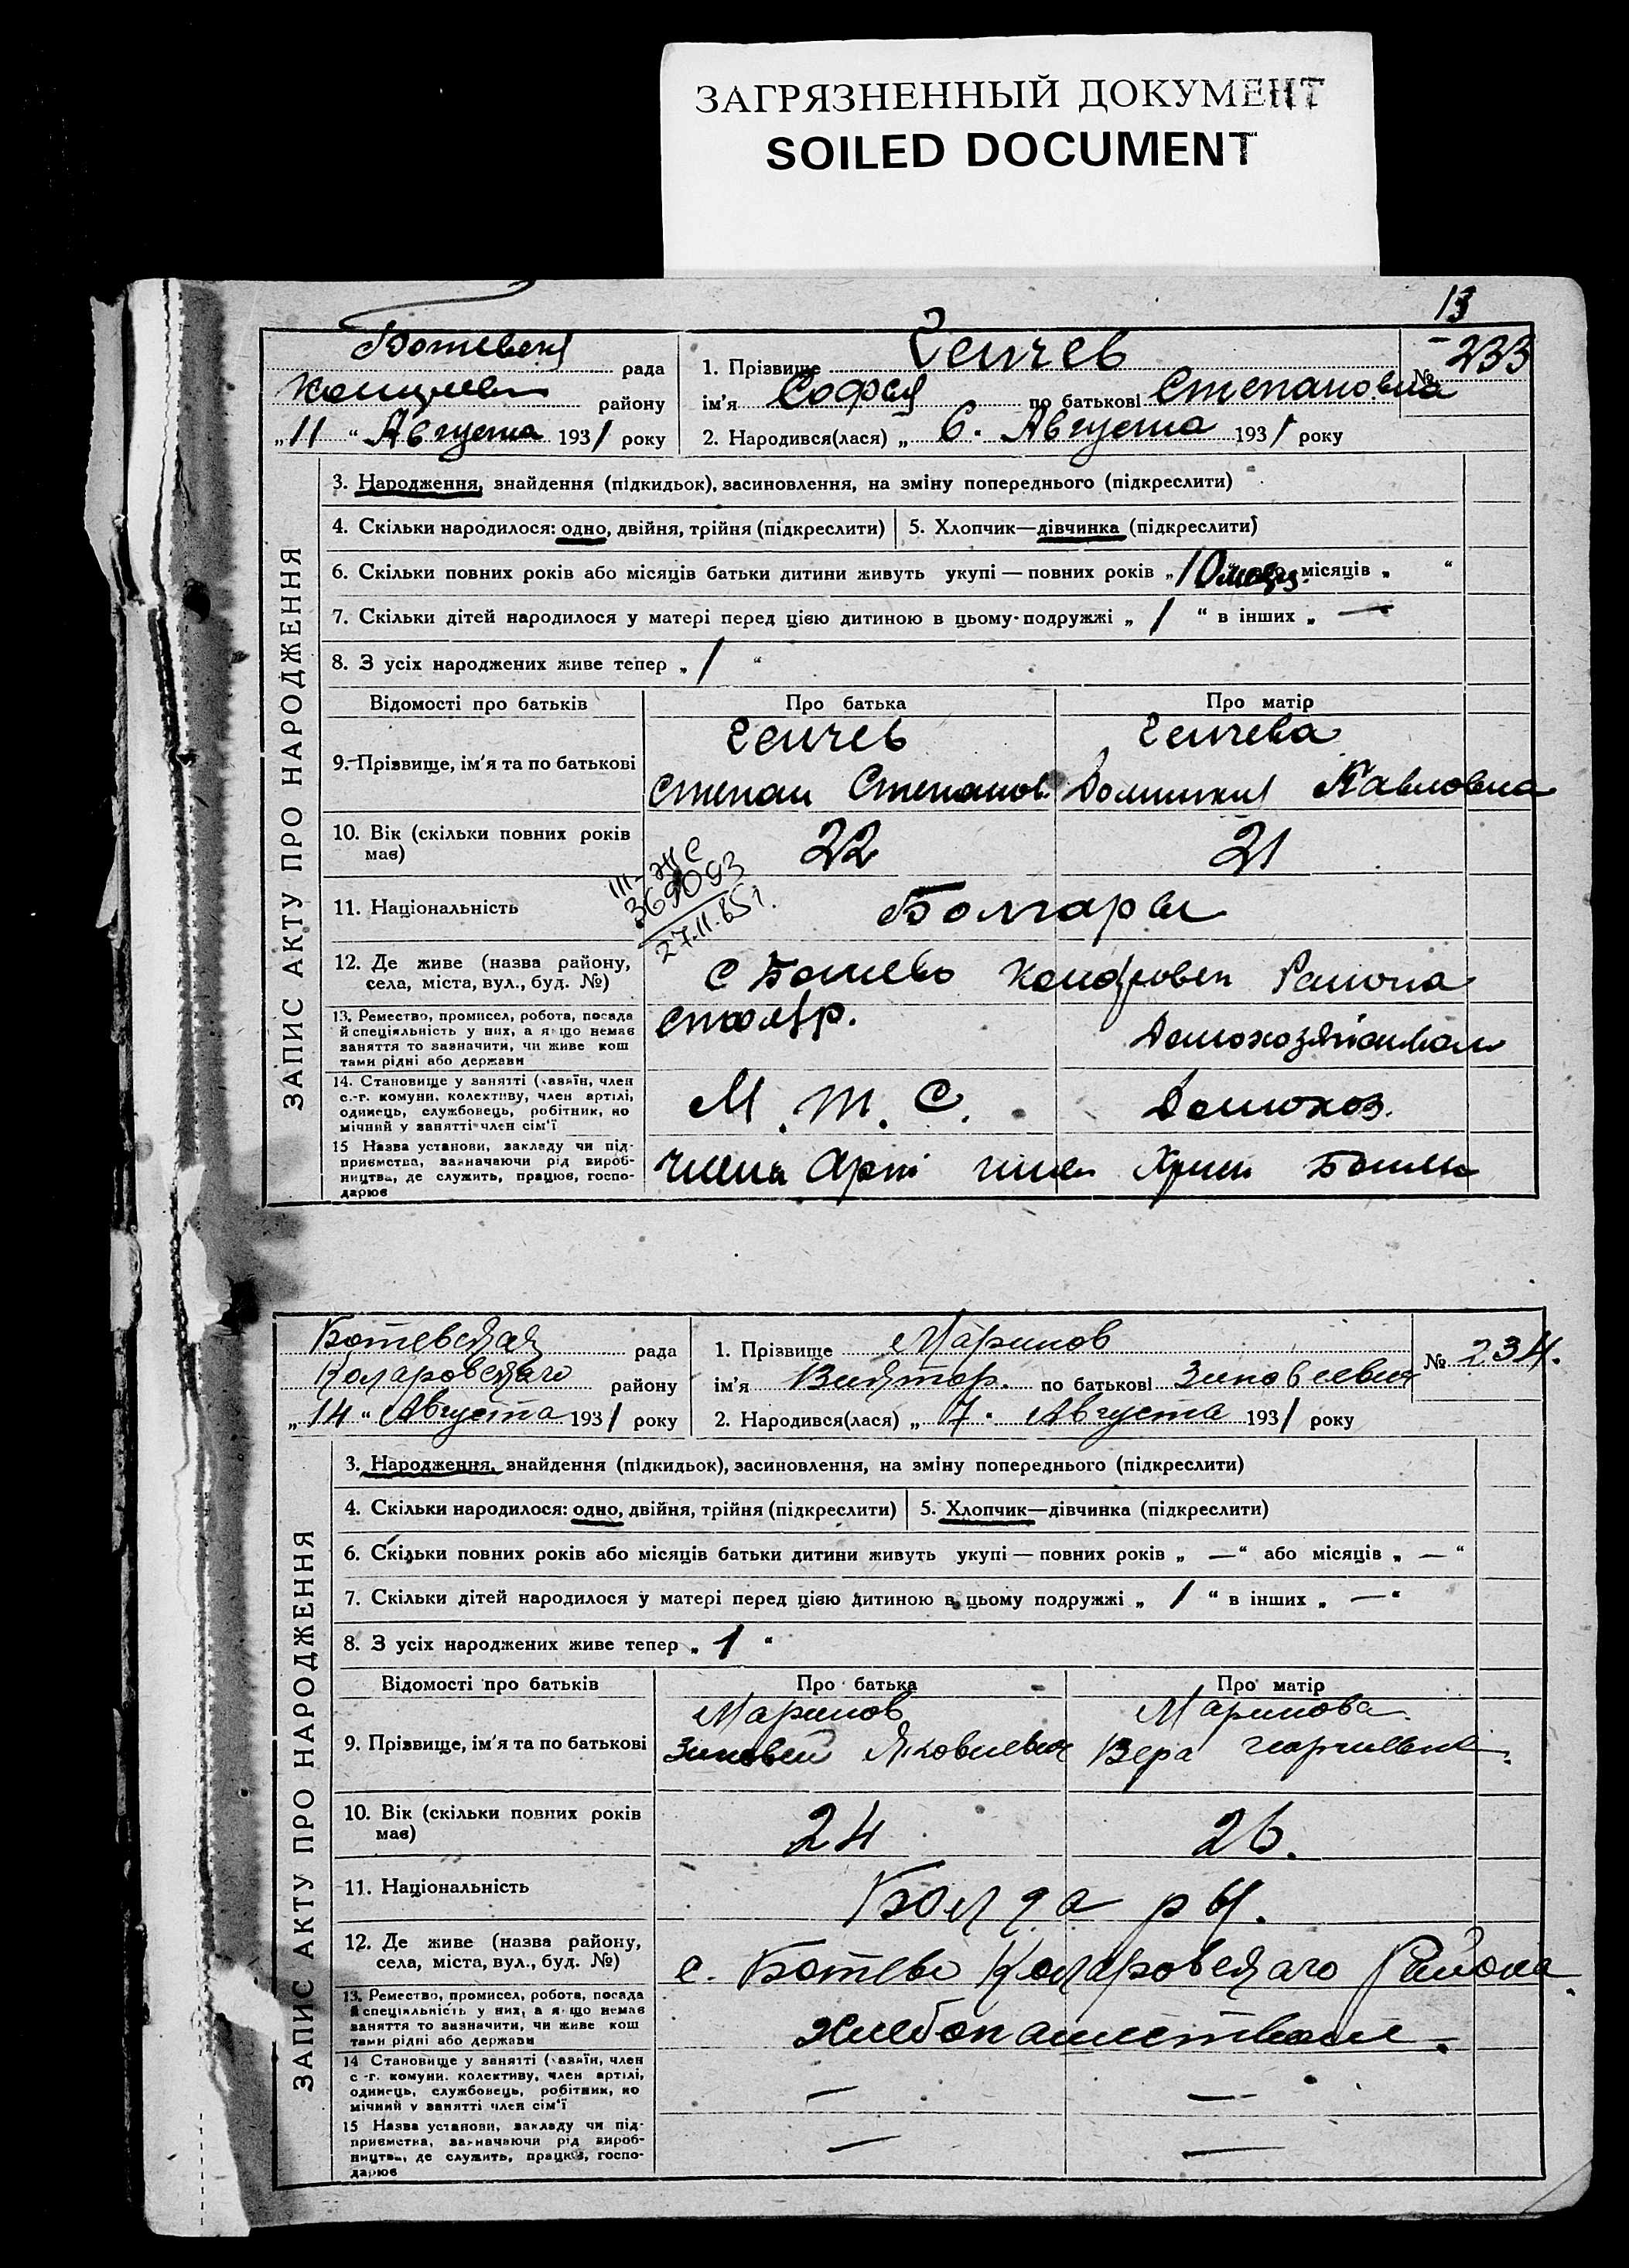 ЗАГРЯЗНЕННЫЙ ДОКУМЕНТ
SOILED DOCUMENT
13
рада
району
„11“ Августа 1931 року
1. Прізвище
№ 233
ім'я Софья по батькові Степановна
2. Народився(лася) „ 6. Августа 1931 року
ЗАПИС АКТУ ПРО НАРОДЖЕННЯ
3. Народження, знайдення (підкидьок), засиновлення, на зміну попереднього (підкреслити)
4. Скільки народилося: одно, двійня, трійня (підкреслити)
5. Хлопчик—дівчинка (підкреслити)
6. Скільки повних років або місяців батьки дитини живуть укупі — повних років „ 10 місяців „ “
7. Скільки дітей народилося у матері перед цією дитиною в цьому подружжі „ 1 “ в інших „ —
8. З усіх народжених живе тепер „ 1 “
Відомості про батьків
Про батька
Про матір
9. Прізвище, ім'я та по батькові
Степан Степанов.
Павловна
10. Вік (скільки повних років має)
22
21
III-ЖС
369093
27.11.
11. Національність
Болгары
12. Де живе (назва району,
села, міста, вул., буд. №)
с Ботево Района
13. Ремество, промисел, робота, посада
й спеціяльність у них, а якщо немає
заняття то зазначити, чи живе кош
тами рідні або держави
столяр.
14. Становище у занятті (хазяїн, член
с.-г. комуни, колективу, член артілі,
одинець, службовець, робітник, по
мічний у занятті член сім'ї
М. Т. С.
Домохоз.
15 Назва установи, закладу чи під-
приємства, зазначаючи рід вироб-
ництва, де служить, працює, госпо-
дарює
Ботевская рада
Коларовскаго району
„14“ Августа 1931 року
1. Прізвище Маринов
№ 234.
ім'я Виктор. по батькові Зиновеевич
2. Народився(лася) „ 7. Августа 1931 року
ЗАПИС АКТУ ПРО НАРОДЖЕННЯ
3. Народження, знайдення (підкидьок), засиновлення, на зміну попереднього (підкреслити)
4. Скільки народилося: одно, двійня, трійня (підкреслити)
5. Хлопчик—дівчинка (підкреслити)
6. Скільки повних років або місяців батьки дитини живуть укупі — повних років „ — “ або місяців „ — “
7. Скільки дітей народилося у матері перед цією дитиною в цьому подружжі „ 1 “ в інших „ — “
8. З усіх народжених живе тепер „ 1 “
Відомості про батьків
Про батька
Про матір
Маринов
Маринова
9. Прізвище, ім'я та по батькові
Зиновей Яковлевич
Вера
10. Вік (скільки повних років має)
24
26.
11. Національність
Болгары.
12. Де живе (назва району,
села, міста, вул., буд. №)
с. Ботево Коларовскаго Района.
13. Ремество, промисел, робота, посада
й спеціяльність у них, а якщо немає
заняття то зазначити, чи живе кош
тами рідні або держави
хлебопашеством.
14 Становище у занятті (хазяїн, член
с.-г. комуни, колективу, член артілі,
одинець, службовець, робітник, по
мічний у занятті член сім'ї
— —
15 Назва установи, закладу чи під-
приємства, зазначаючи рід вироб-
ництва, де служить, працює, госпо-
дарює
— —